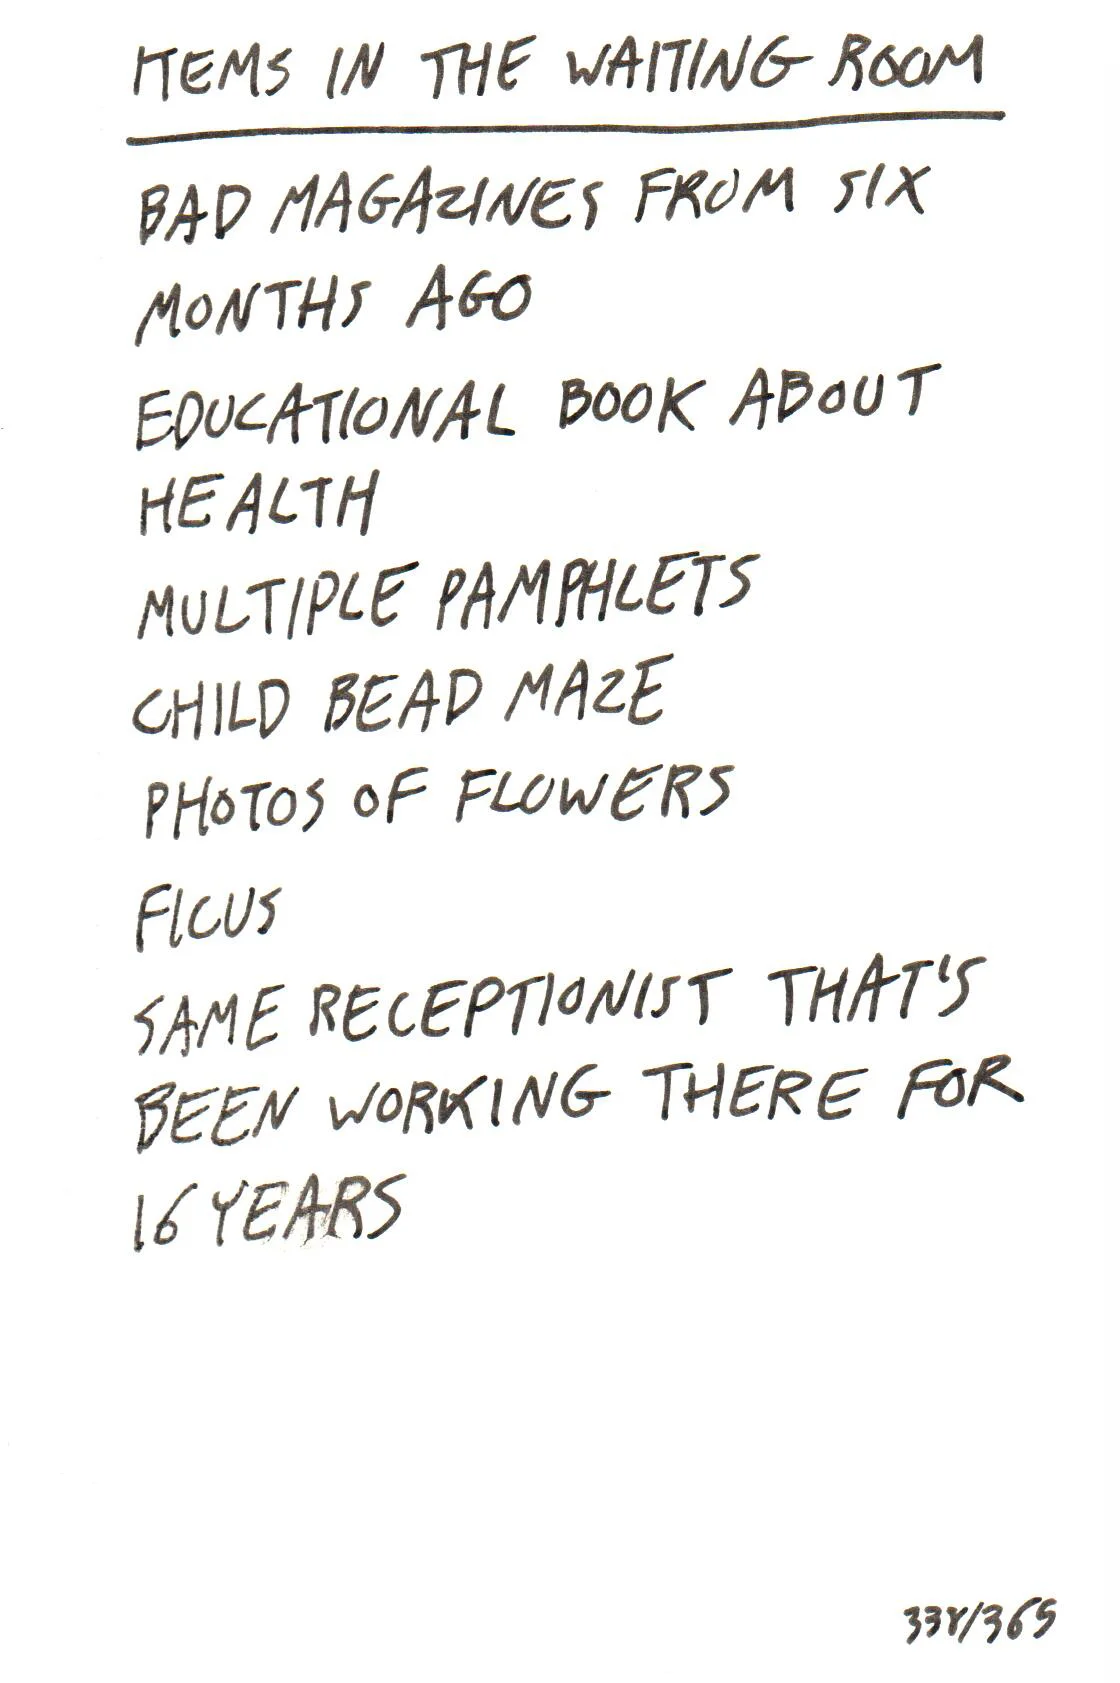 ITEMS IN THE WAITING ROOM
BAD MAGAZINES FROM SIX
MONTHS AGO
EDUCATIONAL BOOK ABOUT
HEALTH
MULTIPLE PAMPHLETS
CHILD BEAD MAZE
PHOTOS OF FLOWERS
FICUS
SAME RECEPTIONIST THAT'S
BEEN WORKING THERE FOR
16 YEARS
338/365